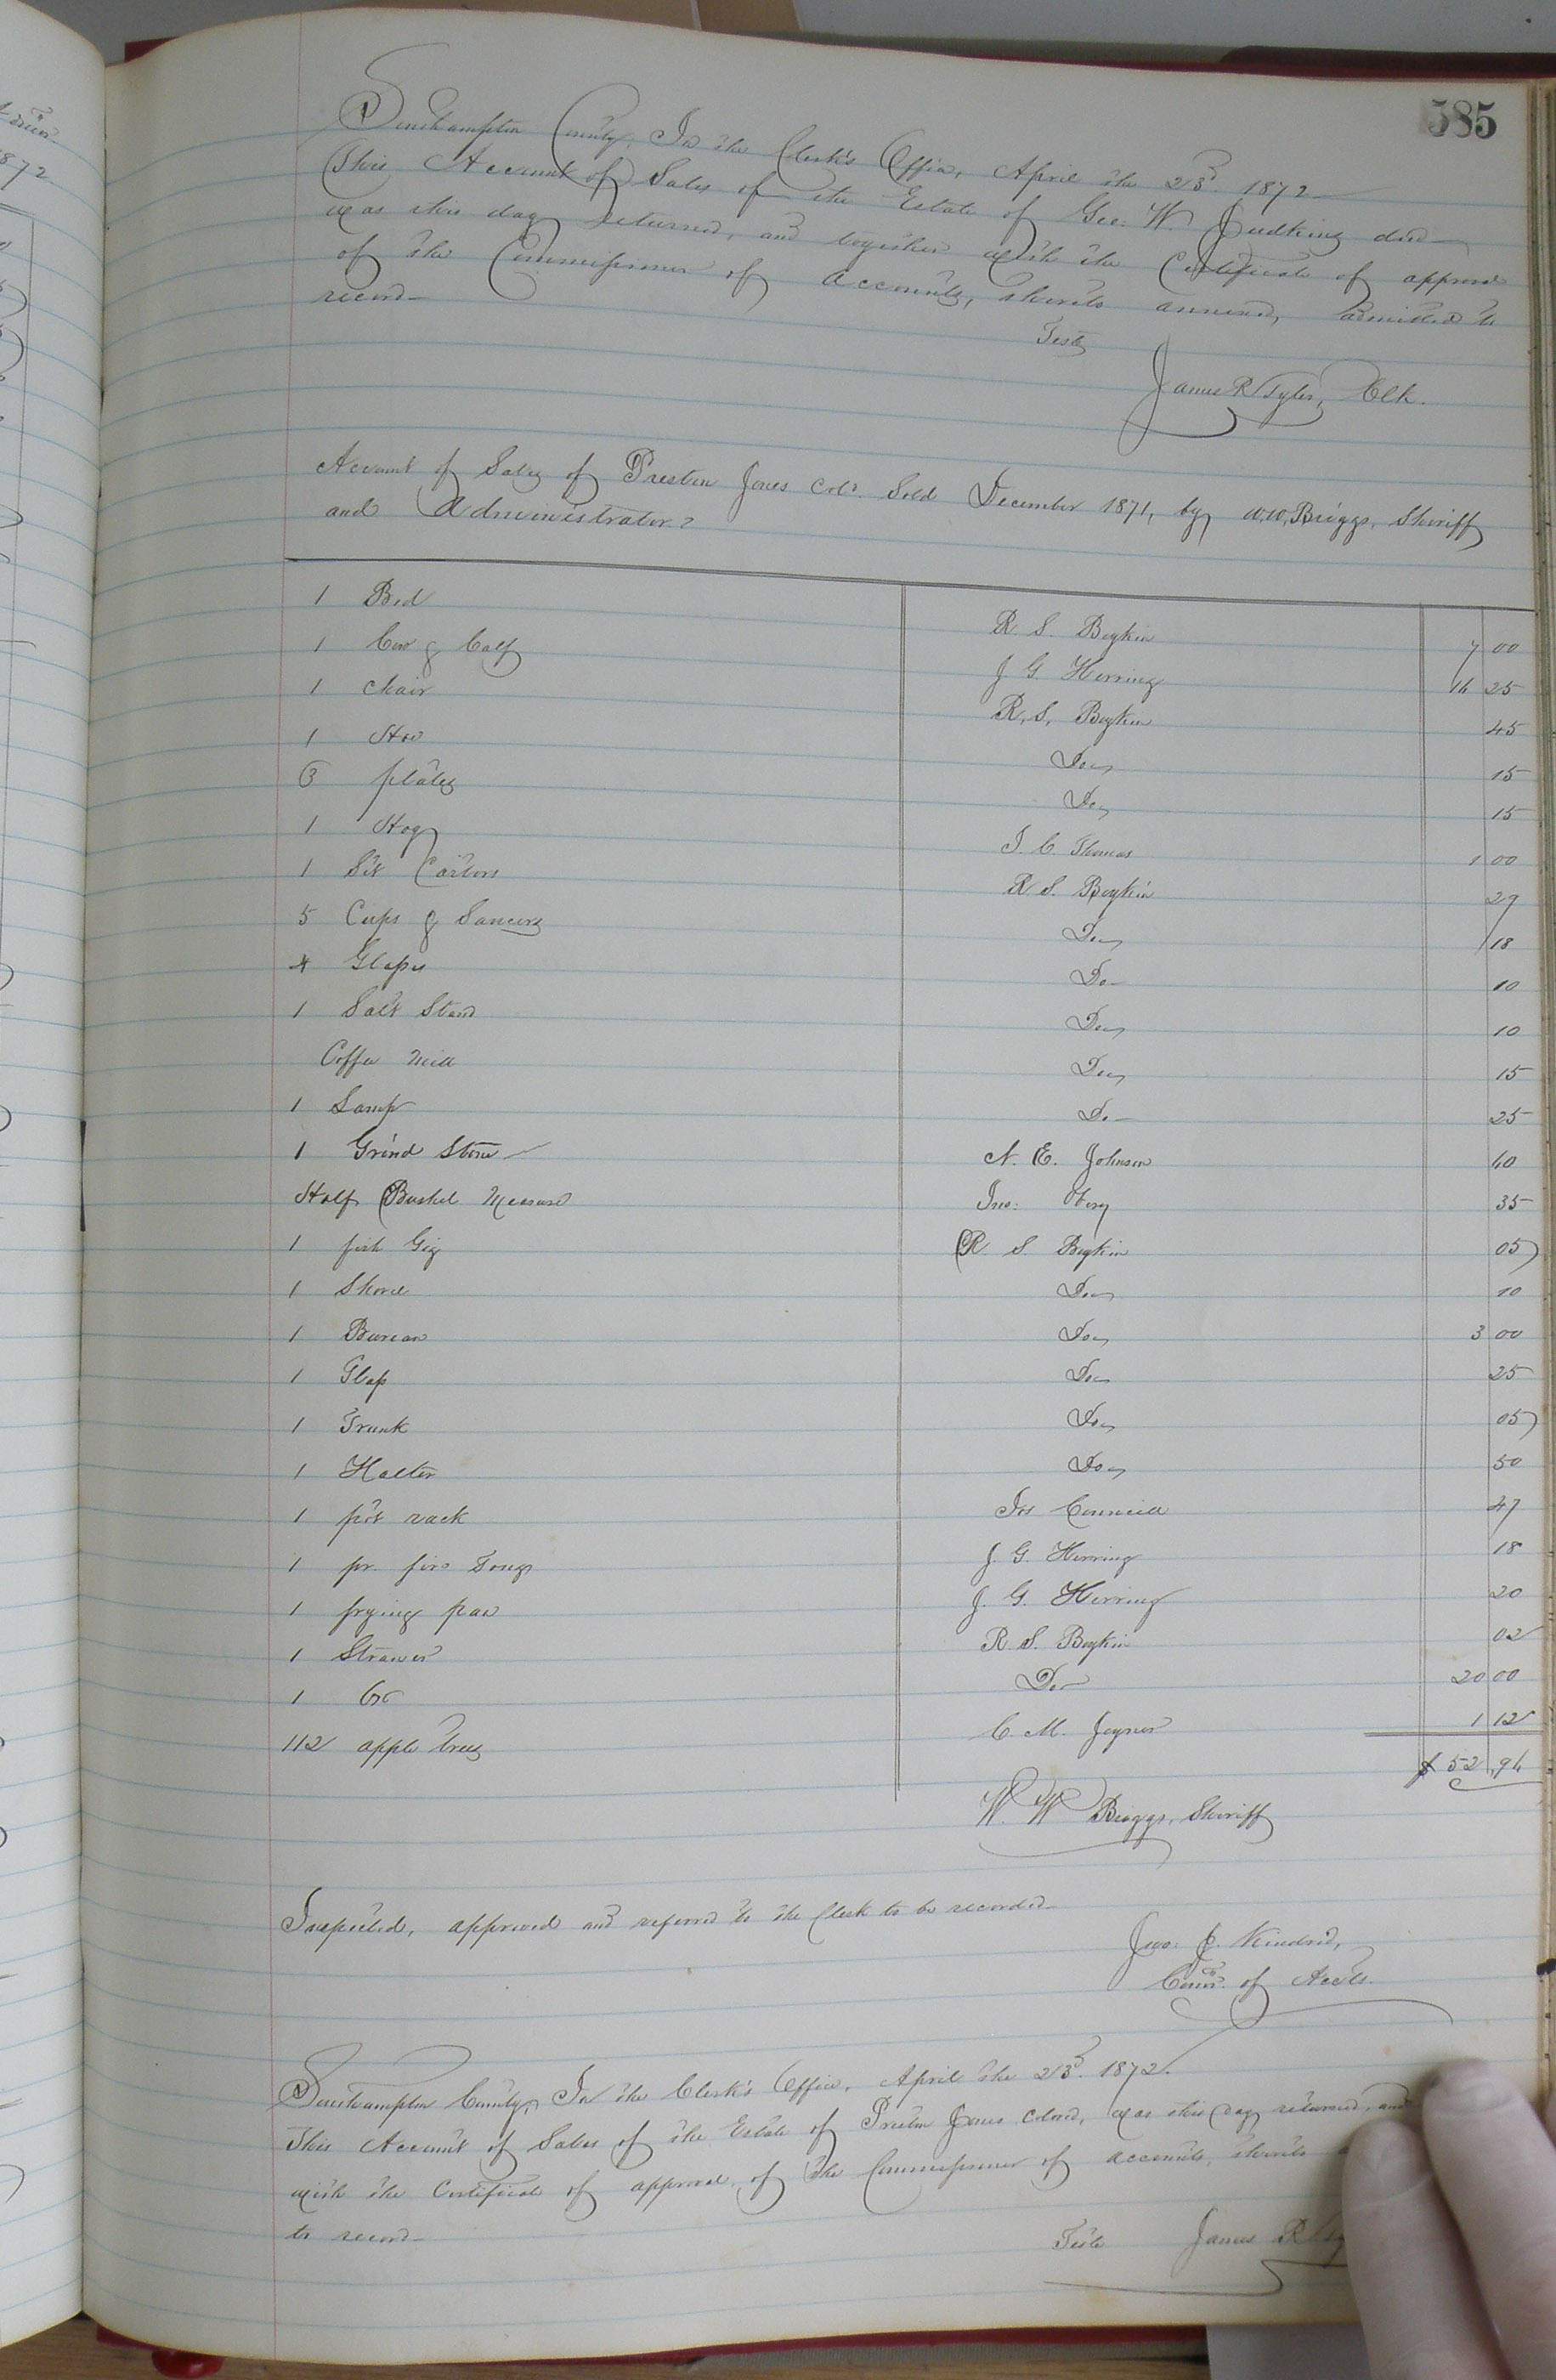 585
Southampton County, In the Clerk's Office, April the 23d 1872
This Account of Sales of the Estate of Geo. W. Judkins decd
was this day returned, and together with the Certificate of approval
of the Commissioner of accounts, thereto annexed, admitted to
record
Teste
James R Tyler, Clk.
Account of Sales of Preston Jones Cold. Sold December 1871, by W.W. Briggs, Sheriff
and Administrator
1 Bed R. S. Boykin 7 00
1 Cow & Calf J G. Herring 16 25
1 Chair R. S. Boykin 45
1 Hoe Do 15
6 plates Do 15
1 Hog J. C. Thomas 1 00
1 Set Castors R S. Boykin 29
5 Cups & Saucers Do 18
4 Glasses Do 10
1 Salt Stand Do 10
Coffee Mill Do 15
1 Lamp Do 25
1 Grind Stone N. E. Johnson 60
Half Bushel Measure Jno: 35
1 fish Gig R. S. Boykin 05
1 Shovel Do 10
1 Bureau Do 3 00
1 Glass Do 25
1 Trunk Do 05
1 Halter Do 50
1 pot rack Jas Council 47
1 pr. fire Tongs J. G. Herring 18
1 frying pan J. G. Herring 20
1 Strainer R. S. Boykin 02
1 Ox Do 20 00
112 apple trees C. M. Joyner 1 12
$ 52,96
W. W Briggs, Sheriff
Inspected, approved and referred to the Clerk to be recorded
Jno: J. Kindred,
Comr. of Accts.
Southampton County, In the Clerk's Office, April the 23d. 1872.
This Account of Sales of the Estate of Preston Jones Colord, was this day returned, and
with the Certificate of approval, of the Commissioner of accounts, thereto
to record
Teste James R